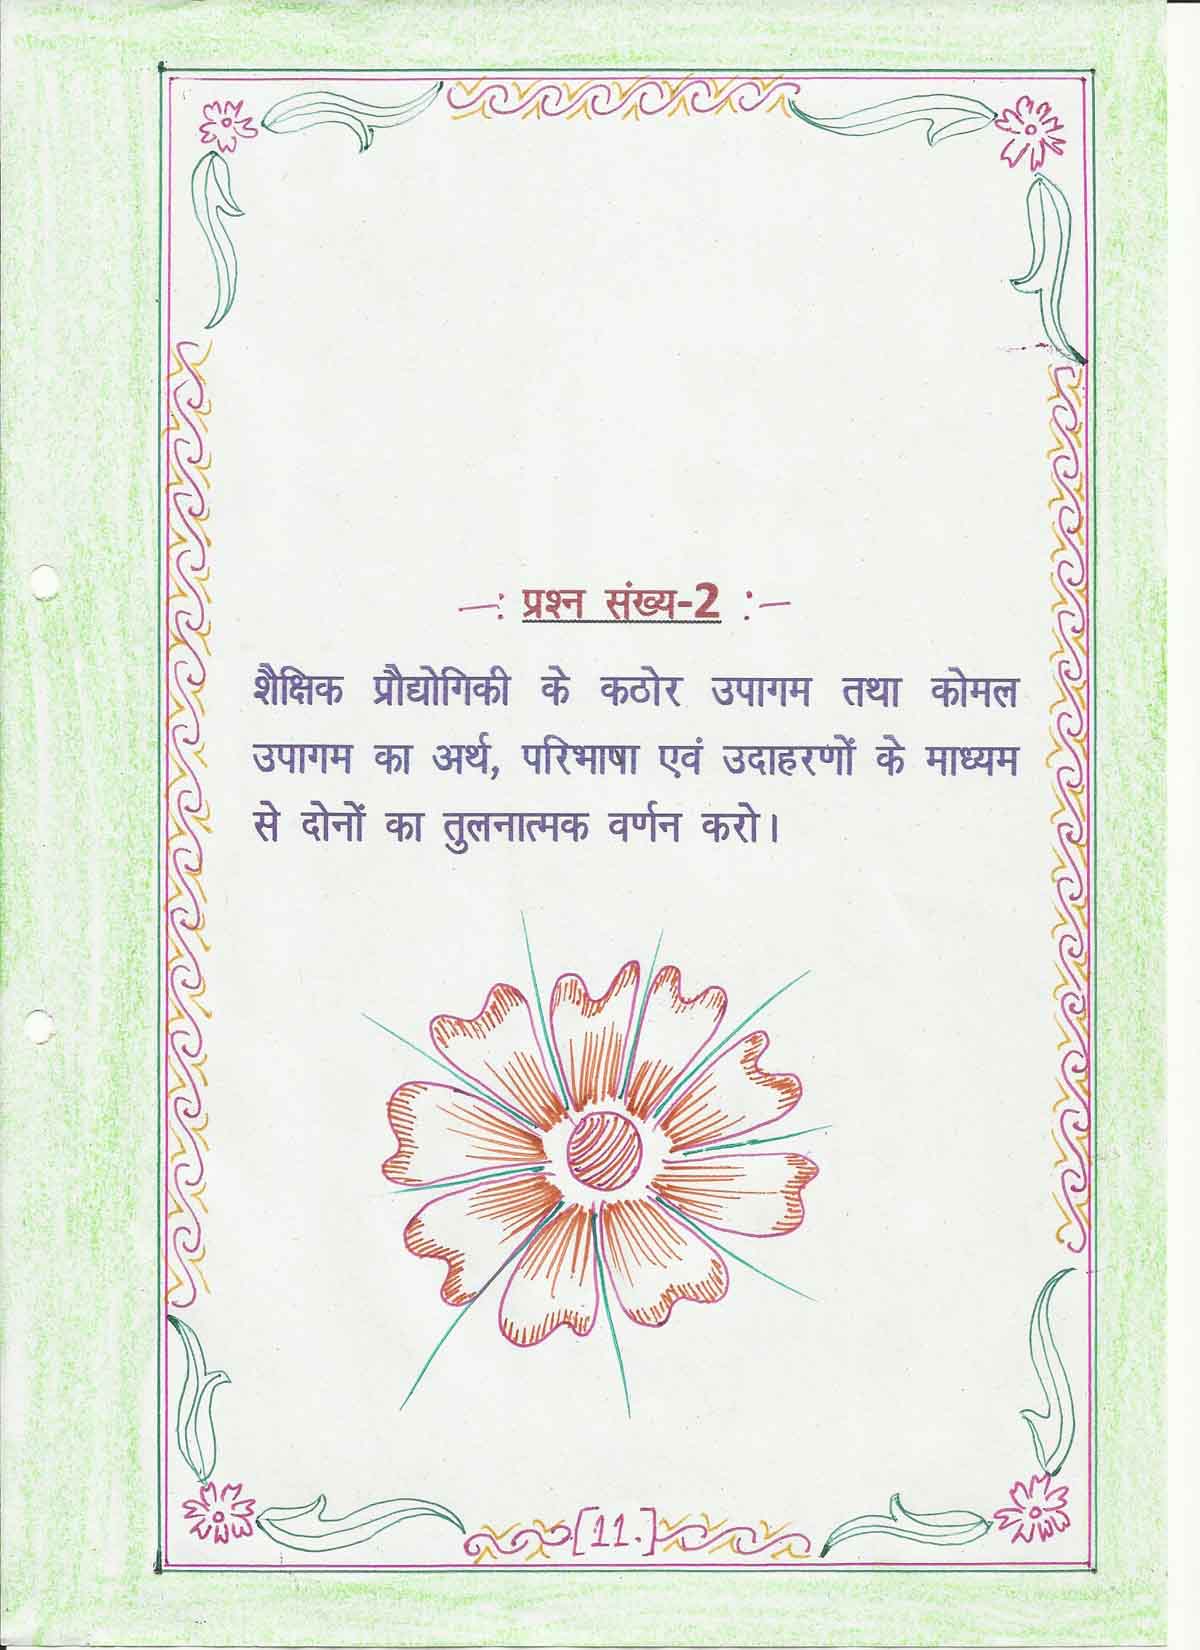 —: प्रश्न संख्य-2 :—
शैक्षिक प्रौद्योगिकी के कठोर उपागम तथा कोमल
उपागम का अर्थ, परिभाषा एवं उदाहरणों के माध्यम
से दोनों का तुलनात्मक वर्णन करो।
[11.]